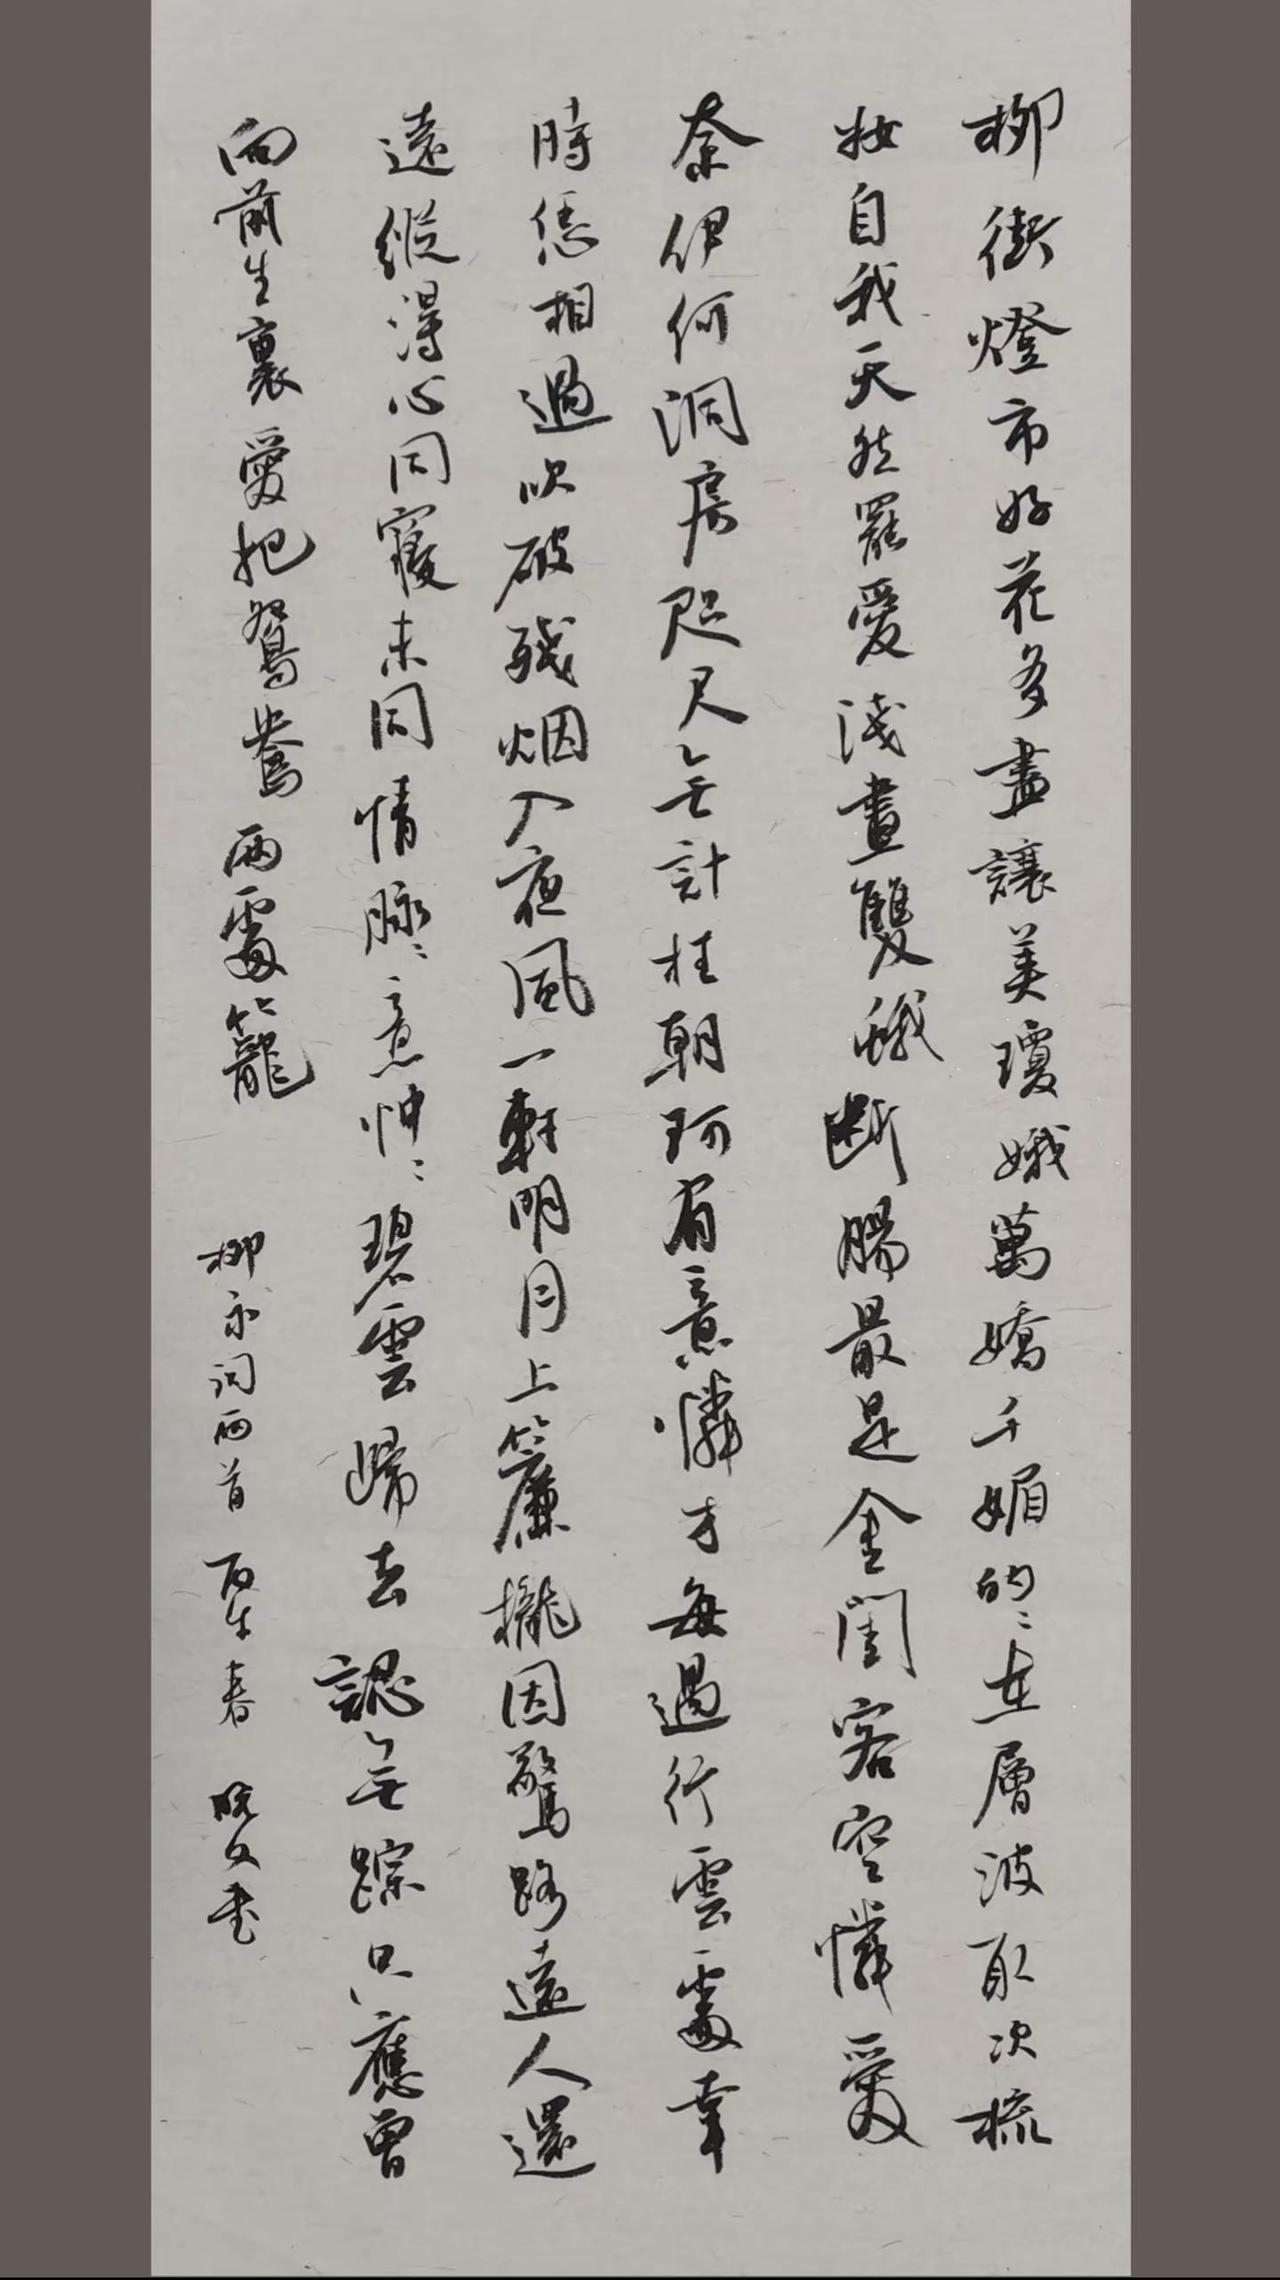 柳街燈市好花多盡讓美瓊娥萬嬌千媚的〻在層波取次梳
妝自我天然罷愛淺畫雙蛾断腸最是金閨客空憐愛
奈伊何洞房咫尺無計枉朝珂有意憐才每過行雲處幸
時恁相過吹破残烟入夜風一軒明月上簾櫳因驚路遠人還
遠縱得心同寢未同情脉〻意忡〻碧雲歸去認無踪只應曾
向前生裏愛把鴛鴦兩處籠
柳永詞兩首 丙午春 晓文书